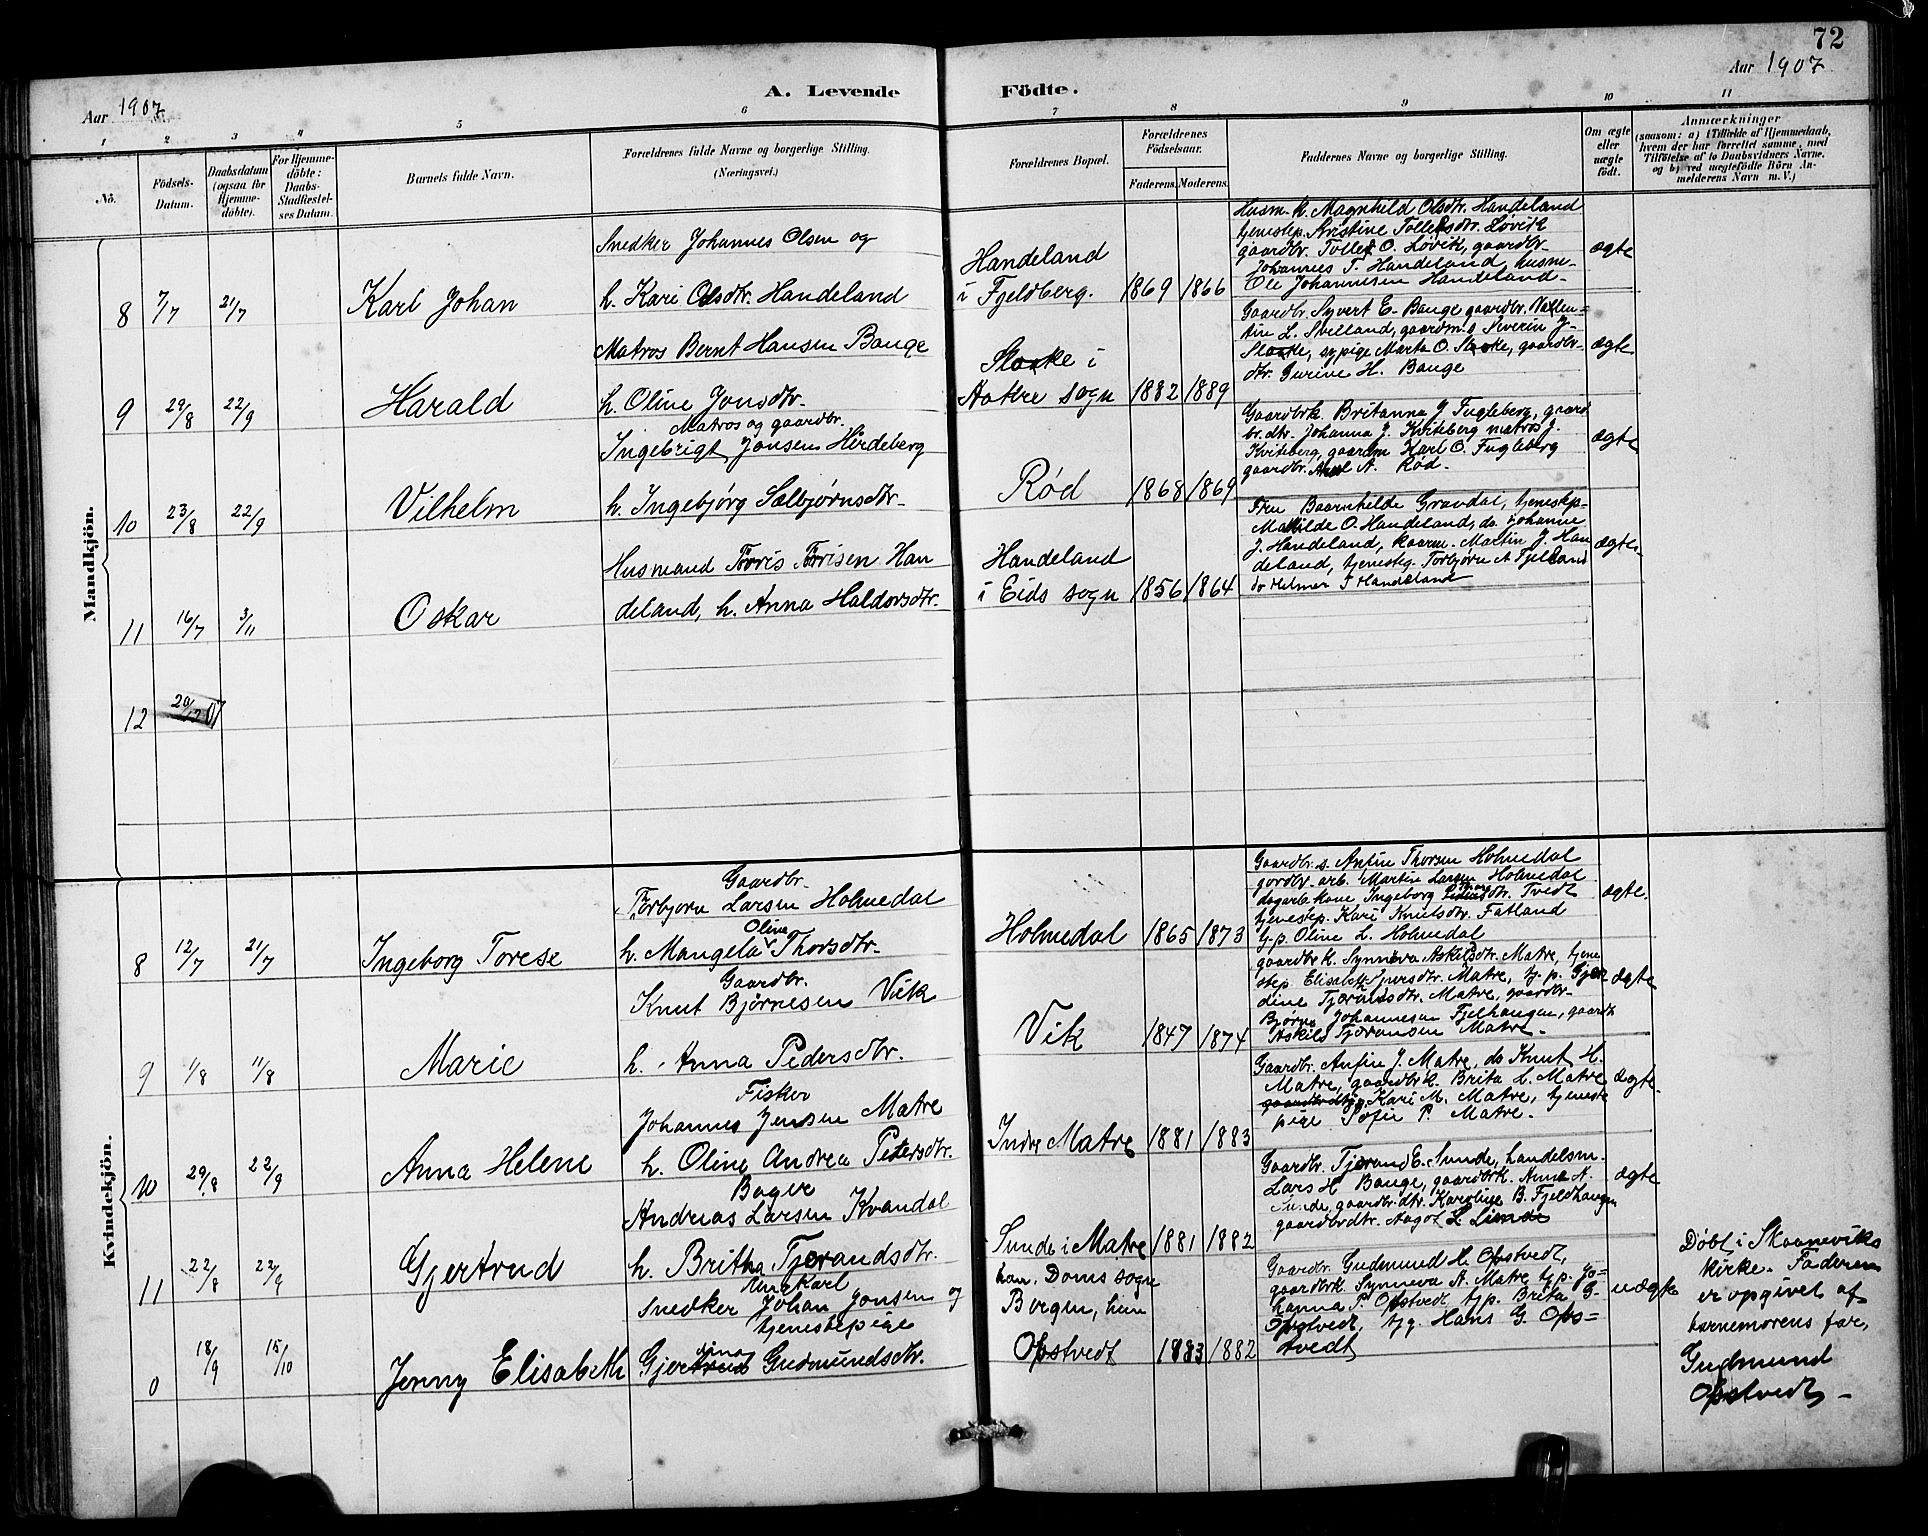 72
Aar 1907
A. Levende Födte.
Aar 1907
1 2 3 4 5 6 7 8 9 10 11
No.
Födsels-Datum.
Daabsdatum (ogsaa for Hjemme-döbte).
For Hjemme-döbte: Daabs-Stadfæstel-ses Datum.
Barnets fulde Navn.
Forældrenes fulde Navne og borgerlige Stilling.
(Næringsvei.)
Forældrenes Bopæl.
Forældrenes Födselsaar.
Faderens. Moderens.
Faddernes Navne og borgerlige Stilling.
Om ægte eller uægte födt.
Anmærkninger
(saasom: a) i Tilfælde af Hjemmedaab,
hvem der har forrettet samme, med
Tilföielse af to Daabsvidners Navne,
og b) ved uægtefödte Börn An-
melderens Navn m. V.)
Mandkjön.
8 7/7 21/7 Karl Johan
Snedker Johannes Olsen og
h. Kari Olsdtr. Handeland
Handeland
i Fjeldberg. 1869 1866
Husm. k. Magnhild Olsdtr. Handeland
tjenestep. Kristine Tollefsdtr. Løvik
gaardbr. Tollef O. Løvik, gaardbr.
Johannes T. Handeland, husm.
Ole Johannesen Handeland.
ægte
9 29/8 22/9 Harald
Matros Bernt Hansen Bauge
h. Oline Jonsdtr.
Slaake i
Aakre sogn 1882 1889
Gaardbr. Syvert E. Bauge gaardbr. Vallen=
tin L. Svelland, gaardm. s Severin J.
Slaake, sypige Marta O. Slaake, gaardbr.
dtr. Gurine H. Bauge
ægte
10 23/8 22/9 Vilhelm
Matros og gaardbr.
Ingebrigt Jonsen Hirdeberg
h. Ingebjørg Sælbjørnsdtr.
Rød 1868 1869
Gaardbrk. Britanna J. Fugleberg, gaard
br. dtr. Johanna J. Kviteberg matros J.
Kviteberg, gaardm Karl O. Fugleberg
gaardbr. A. Rød.
ægte
11 16/7 3/11 Oskar
Husmand Tørris Tørrisen Han
deland, h. Anna Haldorsdtr.
Handeland
i Eids sogn 1856 1864
Fru Gravdal, tjenestep.
Matilde O. Handeland, do Johanne
J. Handeland, Martin J. Han
deland, tjenestg. Torbjørn A Fjelland
do Helmer T Handeland
ægte.
12 20/12 07
Kvindekjön.
8 12/7 21/7 Ingeborg Torese
Gaardbr.
Torbjørn Larsen Holmedal
Oline
h. Mangela Thorsdtr.
Holmedal 1865 1873
Gaardbr. s. Anfin Thorsen Holmedal
gordbr. arb. Martin Larsen Holmedal
dagarb. kone Ingeborg Tvedt
tjenestep. Kari Knutsdtr. Fatland
tj. p. Oline L. Holmedal
ægte.
9 1/8 11/8 Marie
Gaardbr.
Knut Bjørnesen Vik
h. Anna Pedersdtr.
Vik 1847 1874
gaardbr k. Synneva Askilsdtr. Matre, tjene
step. Elisabet Ivarsdtr. Matre, tj. p. Gjer
dine Tjerandsdtr. Matre, gaardbr.
Bjørne Johannesen Fjelhaugen, gaardb
Askild Tjeransen Matre.
ægte
10 29/8 22/9 Anna Helene
Fisker
Johannes Jensen Matre
h. Oline Andrea Petersdtr.
Indre Matre 1881 1883
Gaardbr. Anfin J. Matre, do Knut H.
Matre, gaardbr k. Brita L. Matre
Kari M. Matre, tjeneste
pige Sofie P. Matre.
ægte.
11 22/8 22/9 Gjertrud
Bager
Andreas Larsen Kvandal
h. Britha Tjerandsdtr.
Sunde i Matre 1881 1882
Gaardbr. Tjerand E. Sunde, handelsm.
Lars H Bauge, gaardbrk. Anna A.
Sunde, gaardbr. dtr. Karoline B. Fjeldhaugen
gaardbrdtr. Aagot L Sunde
ægte
0 18/9 15/10 Jenny Elisabeth
Ungkarl
Snedker Johan Jonsen og
tjenestepige
Gjertrud Gudmundsdtr.
han. Doms sogn
Bergen, hun
Opstvedt 1883 1882
Gaardbr. Gudmund H. Opstvedt,
gaardbrk. Synneva A. Matre, tj.p. Jo=
hanna P. Opstvedt, tj.p. Brita G.
Opstvedt, tj.g. Hans G. Ops=
tvedt
uægte
Døbt i Skaaneviks
kirke. Faderen
er opgivet af
barnemorens far,
Gudmund
Opstvedt